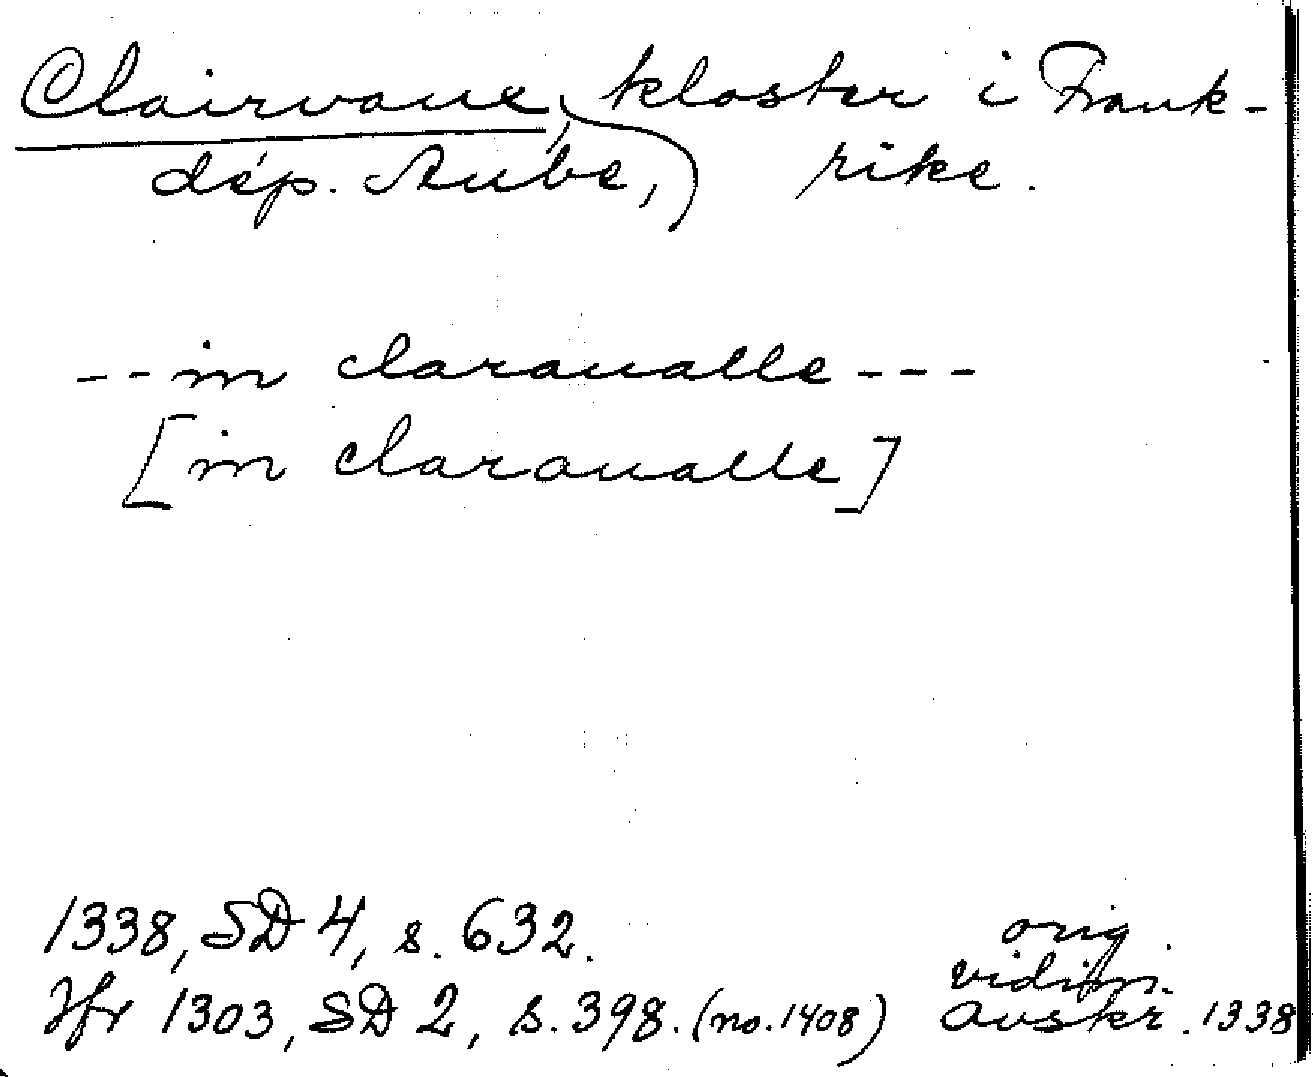 Clairvaux, kloster i Frank-
dép. Aube, rike.
-- in claraualle ---
[in claraualle]
1338, SD 4, s. 632.
orig.
vidim.
Jfr 1303, SD 2, s. 398. (no. 1408) avskr. 1338